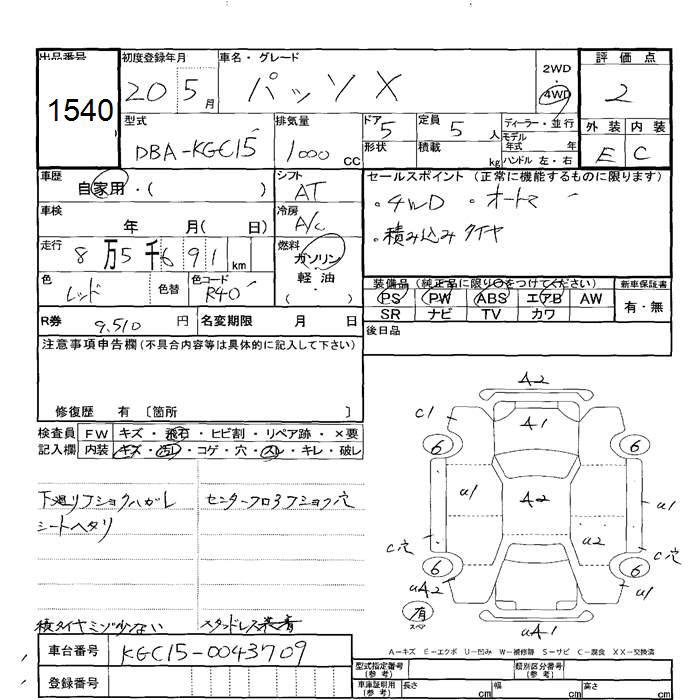 出品番号
1540
初度登録年月
20 5月
車名・グレード
パッソ X
2WD
・
4WD
評価点
2
型式
DBA-KGC15
排気量
1000 CC
ドア
5
形状
定員
5 人
積載
kg
ディーラー・並行
モデル
年式 年
ハンドル 左・右
外装 内装
E C
車歴
自家用・( )
シフト
AT
セールスポイント (正常に機能するものに限ります)
・4WD ・オートマ
・積み込みタイヤ
車検
年 月( 日)
冷房
A/C
走行
8万5千691 km
燃料
ガソリン
軽油
( )
色
レッド
色替
色コード
R40
装備品 (純正品に限り○をつけてください)
PS PW ABS エアB AW
SR ナビ TV カワ
新車保証書
有・無
R券
9,510 円
名変期限 月 日
後日品
注意事項申告欄(不具合内容等は具体的に記入して下さい)
修復歴 有 〔箇所 〕
検査員
記入欄
FW キズ・飛石・ヒビ割・リペア跡・×要
内装 キズ・汚れ・コゲ・穴・スレ・キレ・破レ
下廻りフショクハガレ
シートヘタリ
センターフロアフショク穴
積タイヤミゾ少ない
A2
C1
A1
6
6
u1
A2
u1
C穴
u2
C穴
6
6
uA2
u1
有
スペア
uA1
A－キズ E－エクボ U－凹み W－補修跡 S－サビ C－腐食 XX－交換済
車台番号
KGC15-0043709
登録番号
型式指定番号
(参考)
類別区分番号
(参考)
車庫証明用
(参考)
長さ cm
幅 cm
高さ cm